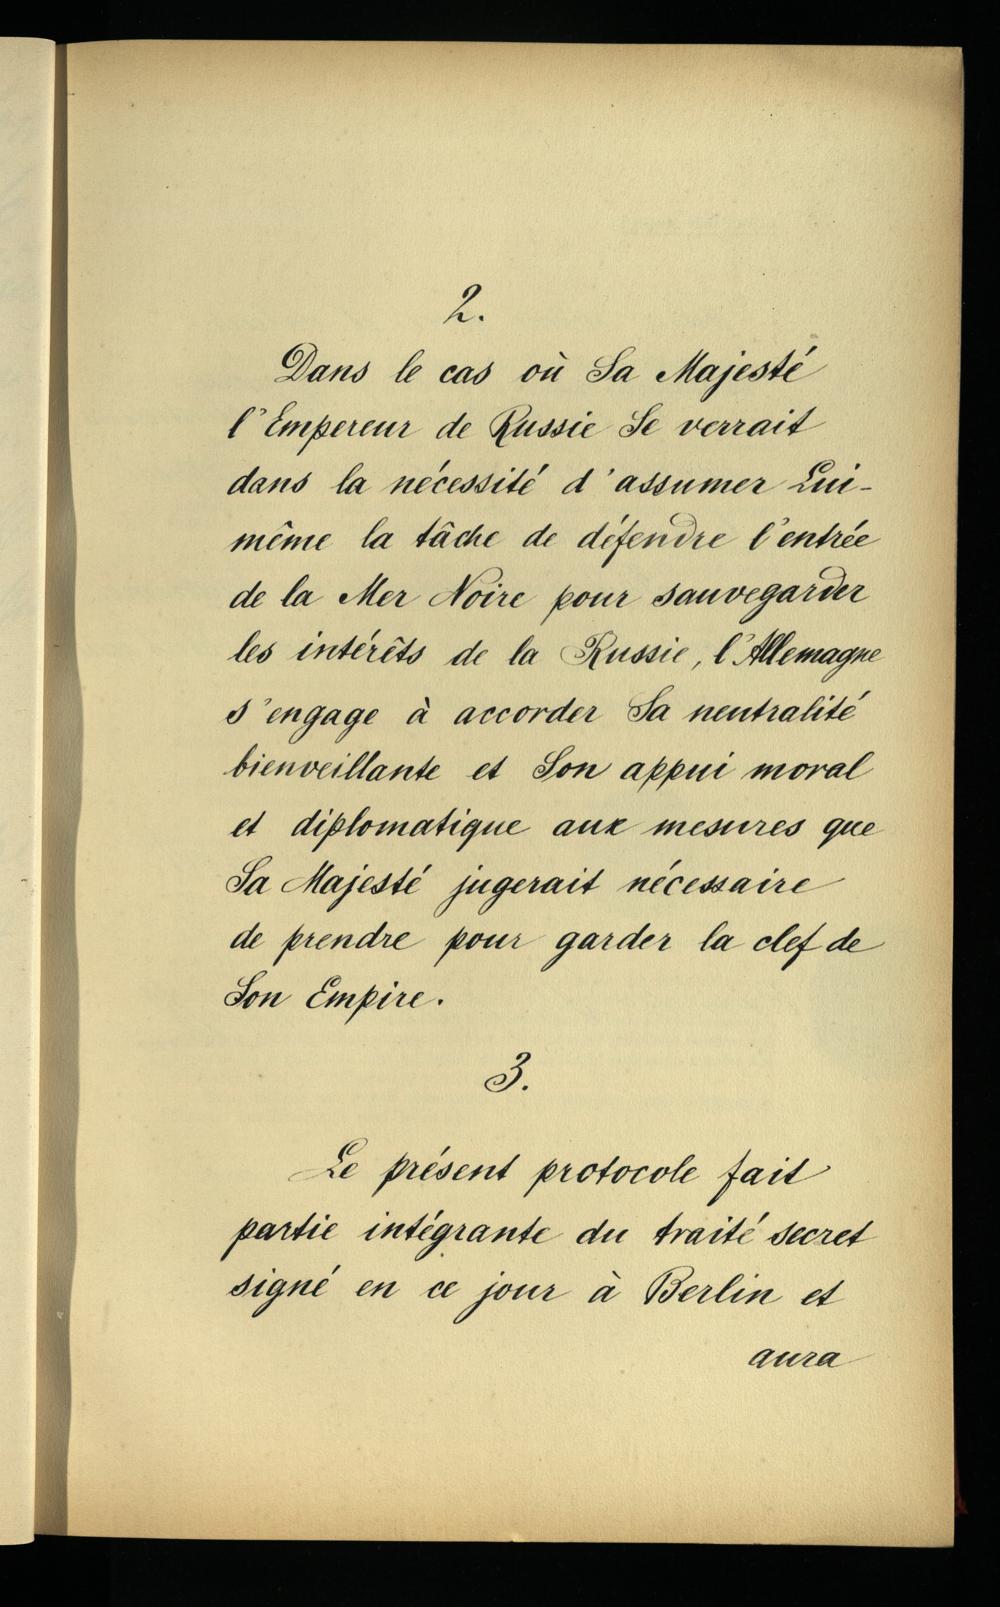 2.
Dans le cas où Sa Majesté
l'Empereur de Russie Se verrait
dans la nécessité d'assumer Lui-
même la tâche de défendre l'entrée
de la Mer Noire pour sauvegarder
les intérêts de la Russie, l'Allemagne
s'engage à accorder Sa neutralité
bienveillante et Son appui moral
et diplomatique aux mesures que
Sa Majesté jugerait nécessaire
de prendre pour garder la clef de
Son Empire.
3.
Le présent protocole fait
partie intégrante du traité secret
signé en ce jour à Berlin et
aura